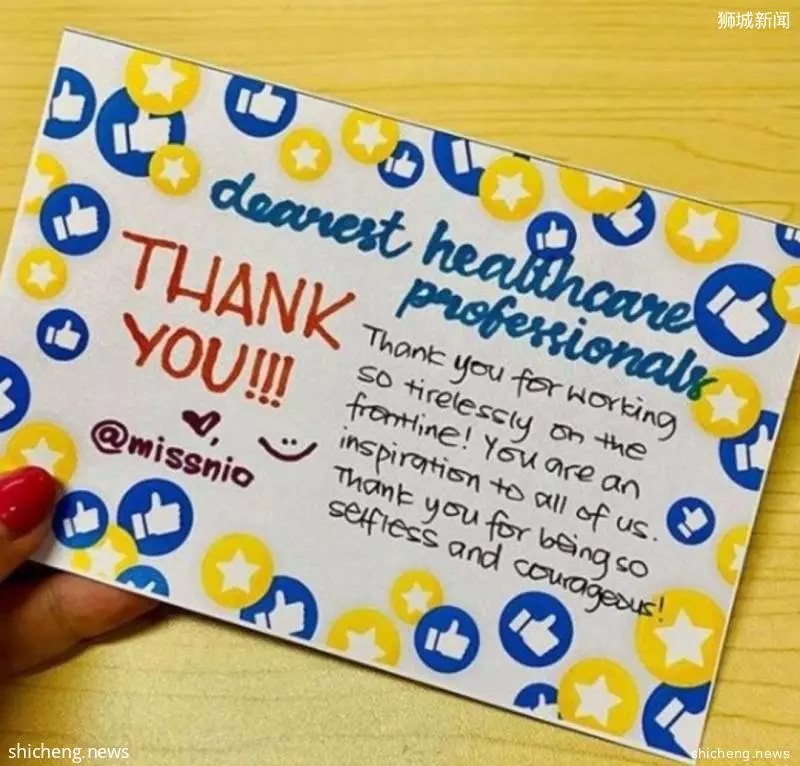 狮城新闻
dearest healthcare
professionals
THANK
YOU!!!
@missnio
Thank you for working
so tirelessly on the
frontline! You are an
inspiration to all of us.
Thank you for being so
selfless and courageous!
shicheng.news
shicheng.news